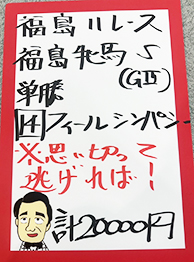 福島11レース
福島牝馬S
(GⅢ)
単勝
14フィールシンパシー
※思い切って
逃げれば!
計20000円